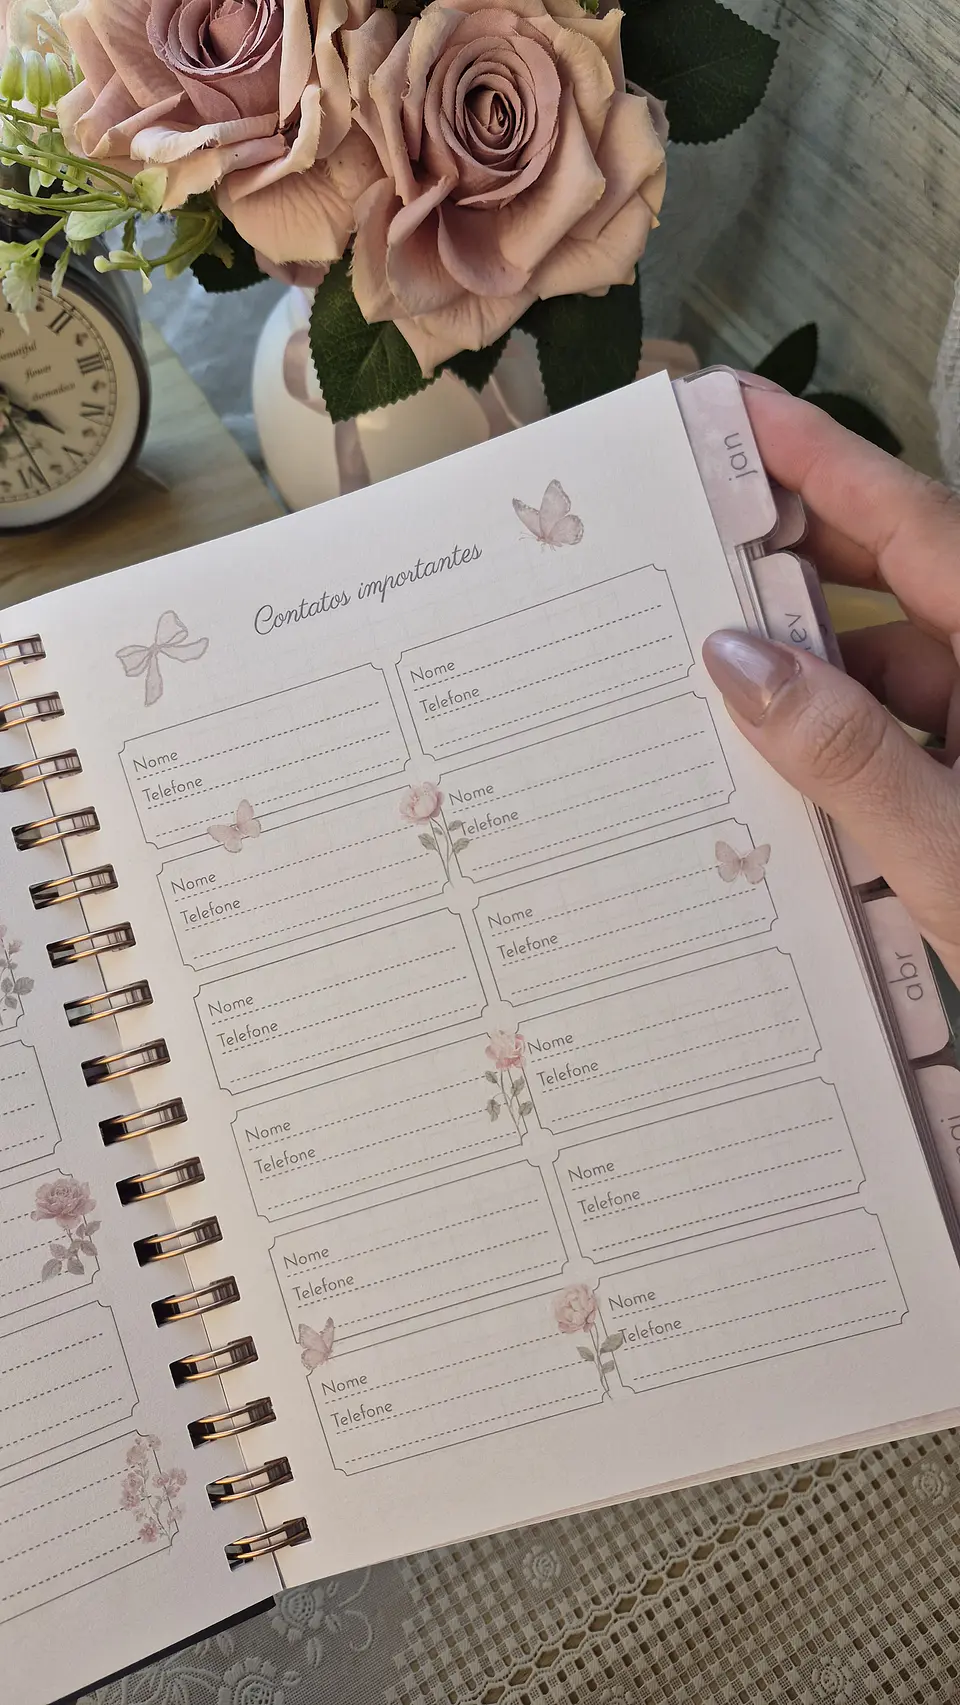 II
III
IV
V
VI
beautiful
flower
jan
Contatos importantes
Nome
Telefone
Nome
Telefone
Nome
Telefone
Nome
Telefone
Nome
Telefone
Nome
Telefone
Nome
Telefone
Nome
Telefone
Nome
Telefone
Nome
Telefone
Nome
Telefone
Nome
Telefone
abr